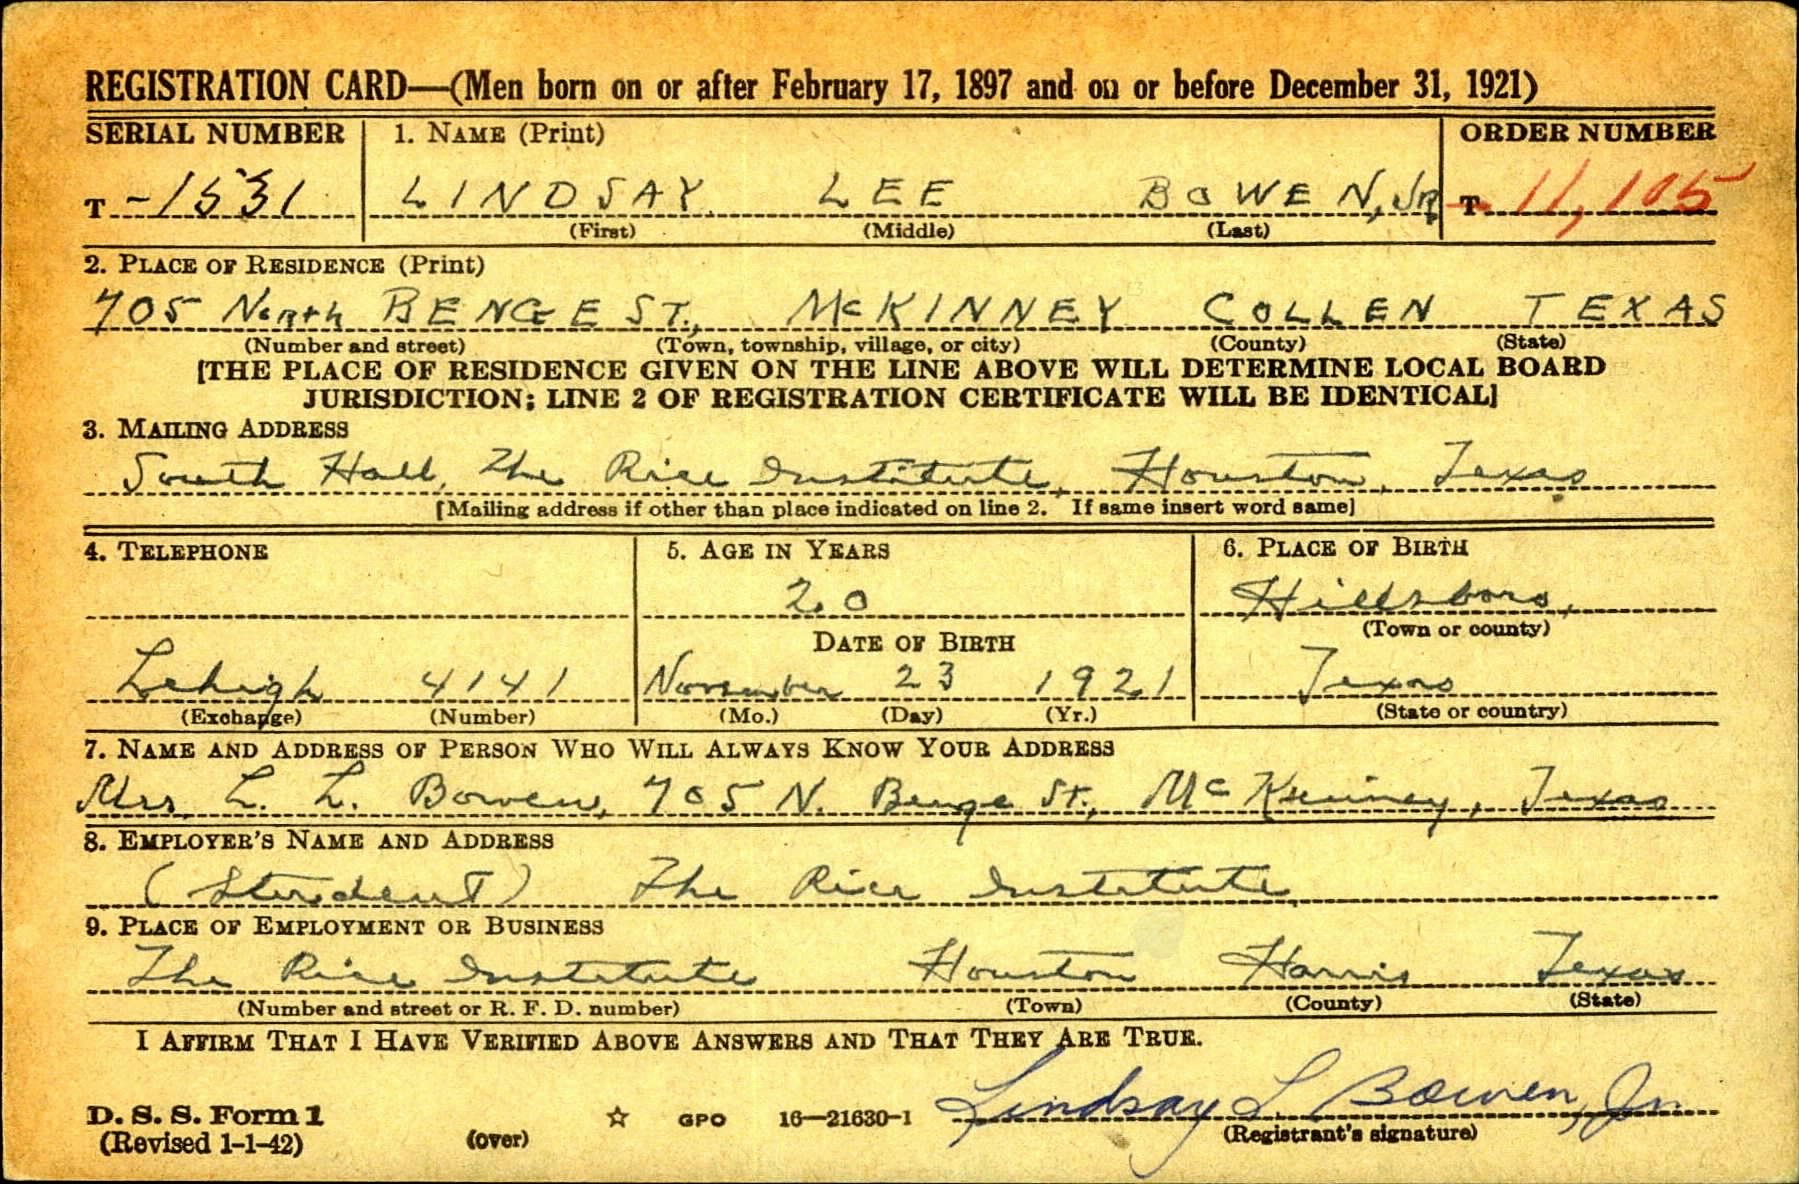 REGISTRATION CARD—(Men born on or after February 17, 1897 and on or before December 31, 1921)
SERIAL NUMBER 1. NAME (Print) ORDER NUMBER
T -1531 LINDSAY LEE BOWEN, JR T 11,105
(First) (Middle) (Last)
2. PLACE OF RESIDENCE (Print)
705 North BENGE ST., McKINNEY COLLEN TEXAS
(Number and street) (Town, township, village, or city) (County) (State)
[THE PLACE OF RESIDENCE GIVEN ON THE LINE ABOVE WILL DETERMINE LOCAL BOARD
JURISDICTION; LINE 2 OF REGISTRATION CERTIFICATE WILL BE IDENTICAL]
3. MAILING ADDRESS
South Hall, The Rice Institute, Houston, Texas
[Mailing address if other than place indicated on line 2. If same insert word same]
4. TELEPHONE 5. AGE IN YEARS 6. PLACE OF BIRTH
20 Hillsboro,
DATE OF BIRTH (Town or county)
Lehigh 4141 November 23 1921 Texas
(Exchange) (Number) (Mo.) (Day) (Yr.) (State or country)
7. NAME AND ADDRESS OF PERSON WHO WILL ALWAYS KNOW YOUR ADDRESS
Mrs. L. L. Bowen, 705 N. Benge St., McKinney, Texas
8. EMPLOYER'S NAME AND ADDRESS
(Student) The Rice Institute
9. PLACE OF EMPLOYMENT OR BUSINESS
The Rice Institute Houston Harris Texas
(Number and street or R. F. D. number) (Town) (County) (State)
I AFFIRM THAT I HAVE VERIFIED ABOVE ANSWERS AND THAT THEY ARE TRUE.
Lindsay L. Bowen, Jr.
D. S. S. Form 1 GPO 16—21630-1
(Revised 1-1-42) (over) (Registrant's signature)